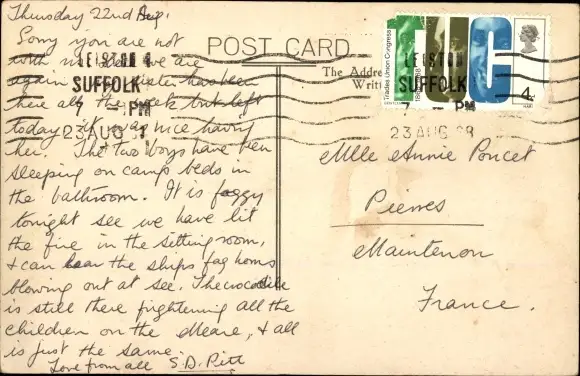 Thursday 22nd Aug.
Sorry you are not
with us. We are
again sister has been
here all the week but left
today it was nice having
her. The two boys have been
sleeping on camp beds in
the bathroom. It is foggy
tonight see we have lit
the fire in the sitting room,
& can hear the ships fog horns
blowing out at see. The crocodile
is still there frightening all the
children on the Meare, & all
is just the same.
Love from all S.D. Pitt
POST CARD
The Addre
Writ
LEISTON
SUFFOLK
7 PM
23 AUG
LEISTON
SUFFOLK
7 PM
23 AUG 68
Trades Union Congress
TUC
4d
Mlle Annie Poncet
Pierres
Maintenon
France.